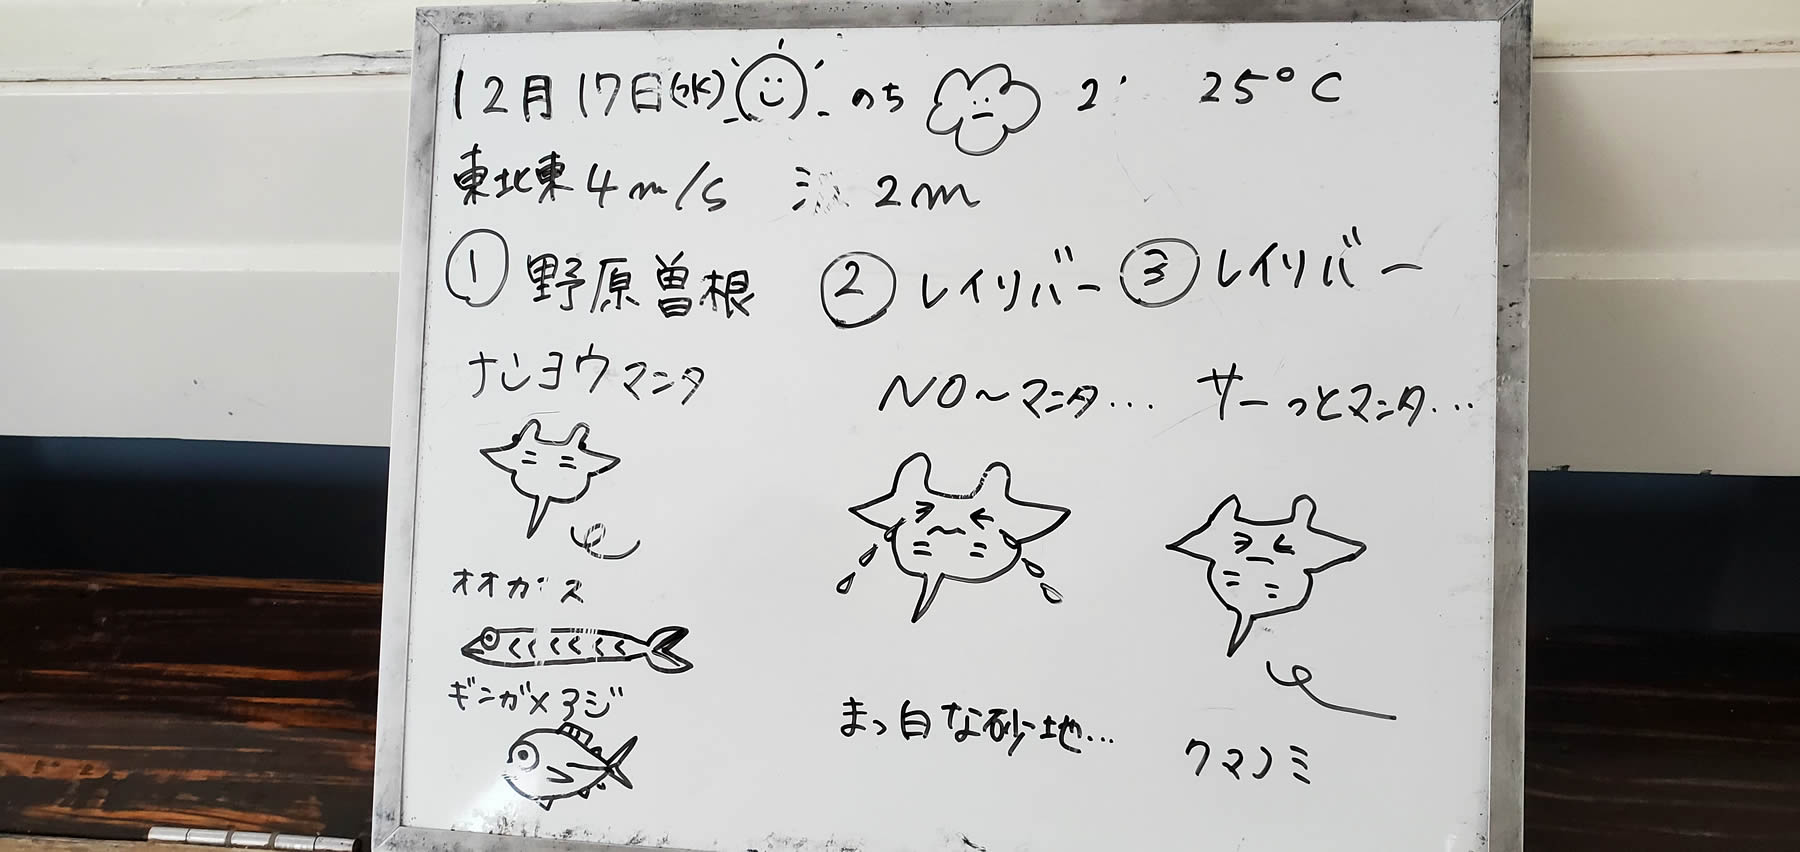 12月17日(水) のち 25°C
東北東4m/s 2m
① 野原曽根 ② レイリバー ③ レイリバー
ナンヨウマンタ
NO〜マンタ… サーっとマンタ…
オオカマス
ギンガメアジ
まっ白な砂地…
クマノミ